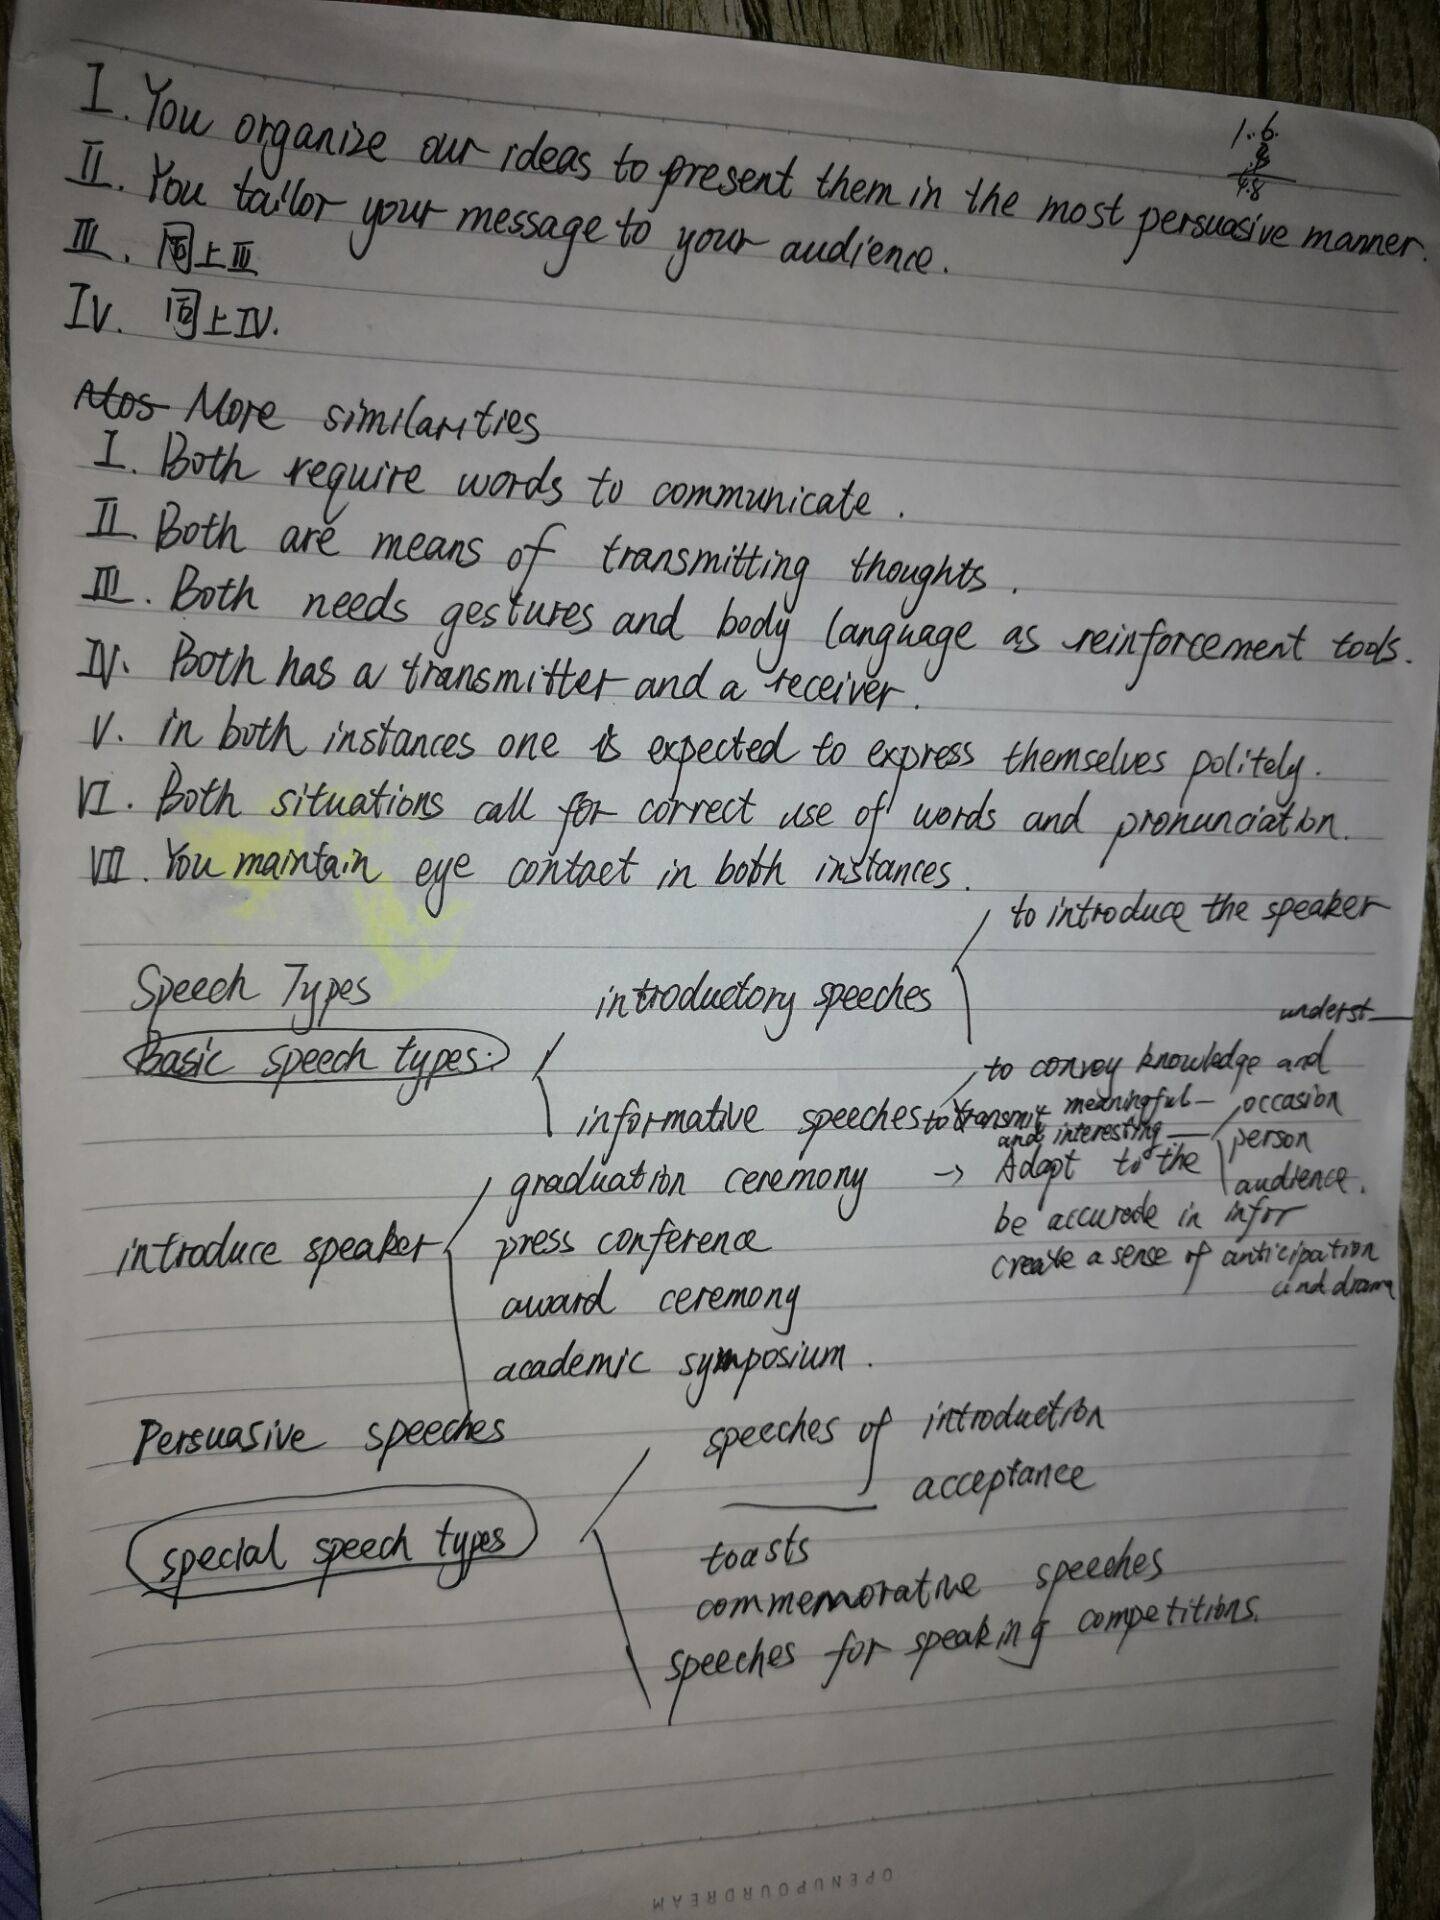 I. You organize our ideas to present them in the most persuasive manner.
1.6
3
4.8
II. You tailor your message to your audience.
III. 同上III
IV. 同上IV.
More similarities
I. Both require words to communicate.
II. Both are means of transmitting thoughts.
III. Both needs gestures and body language as reinforcement tools.
IV. Both has a transmitter and a receiver.
V. in both instances one is expected to express themselves politely.
VI. Both situations call for correct use of words and pronunciation.
VII. You maintain eye contact in both instances.
to introduce the speaker
Speech Types
introductory speeches
underst
Basic speech types.
to convey knowledge and
informative speeches
to transmit meaningful
and interesting
occasion
person
audience.
graduation ceremony → Adapt to the
be accurade in infor
introduce speaker
press conference
create a sense of anticipation
and drama
award ceremony
academic symposium.
Persuasive speeches
speeches of introduction
acceptance
special speech types
toasts
commemorative speeches
speeches for speaking competitions.
OPENUPOURDREAM